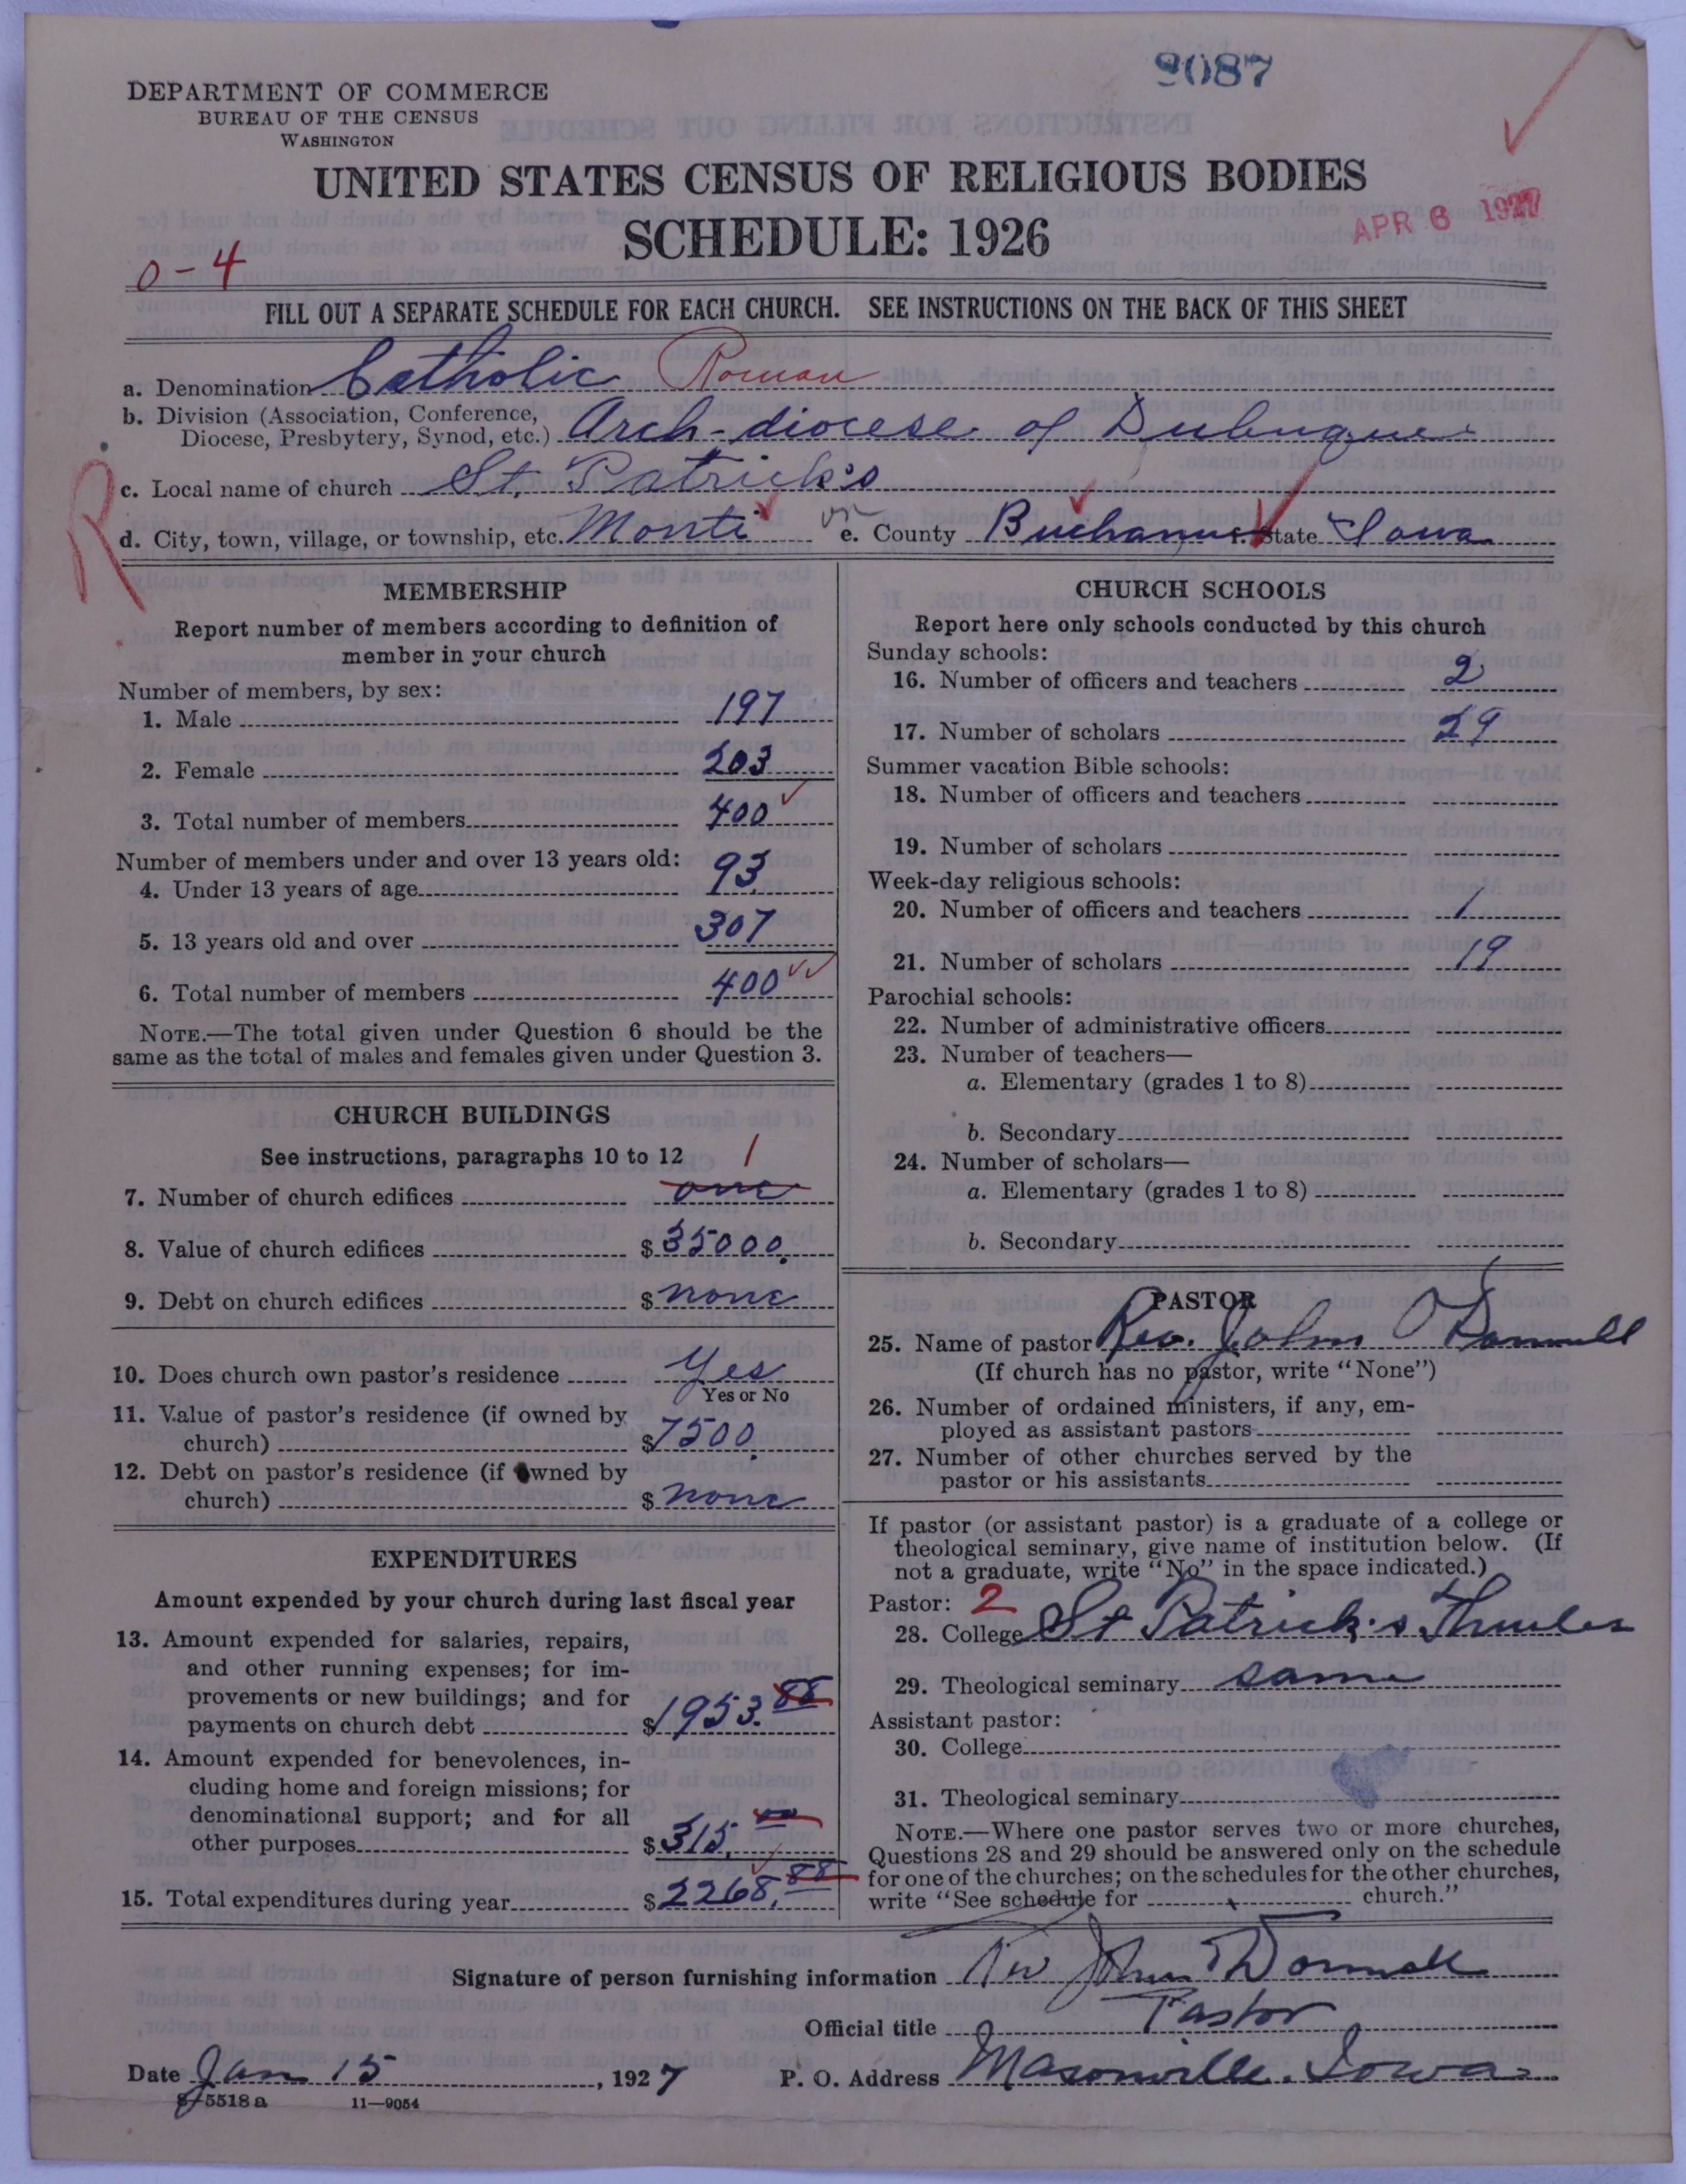 9087
DEPARTMENT OF COMMERCE
BUREAU OF THE CENSUS
WASHINGTON
UNITED STATES CENSUS OF RELIGIOUS BODIES
SCHEDULE: 1926
APR 6 1927
0-4
FILL OUT A SEPARATE SCHEDULE FOR EACH CHURCH. SEE INSTRUCTIONS ON THE BACK OF THIS SHEET
a. Denomination Catholic Roman
b. Division (Association, Conference,
Diocese, Presbytery, Synod, etc.) Arch-diocese of Dubuque
c. Local name of church St. Patrick's
R
d. City, town, village, or township, etc. Monti e. County Buchanan f. State Iowa
MEMBERSHIP
Report number of members according to definition of
member in your church
Number of members, by sex:
1. Male 197
2. Female 203
3. Total number of members 400
Number of members under and over 13 years old:
4. Under 13 years of age 93
5. 13 years old and over 307
6. Total number of members 400
NOTE.—The total given under Question 6 should be the
same as the total of males and females given under Question 3.
CHURCH BUILDINGS
See instructions, paragraphs 10 to 12 1
7. Number of church edifices one
8. Value of church edifices $ 35000.
9. Debt on church edifices $ none
10. Does church own pastor's residence Yes
Yes or No
11. Value of pastor's residence (if owned by
church) $ 7500.
12. Debt on pastor's residence (if owned by
church) $ none
EXPENDITURES
Amount expended by your church during last fiscal year
13. Amount expended for salaries, repairs,
and other running expenses; for im-
provements or new buildings; and for
payments on church debt $ 1953.88
14. Amount expended for benevolences, in-
cluding home and foreign missions; for
denominational support; and for all
other purposes $ 315.00
15. Total expenditures during year $ 2268.88
CHURCH SCHOOLS
Report here only schools conducted by this church
Sunday schools:
16. Number of officers and teachers 2
17. Number of scholars 29
Summer vacation Bible schools:
18. Number of officers and teachers
19. Number of scholars
Week-day religious schools:
20. Number of officers and teachers 1
21. Number of scholars 19
Parochial schools:
22. Number of administrative officers
23. Number of teachers—
a. Elementary (grades 1 to 8)
b. Secondary
24. Number of scholars—
a. Elementary (grades 1 to 8)
b. Secondary
PASTOR
25. Name of pastor Rev. John O'Donnell
(If church has no pastor, write "None")
26. Number of ordained ministers, if any, em-
ployed as assistant pastors
27. Number of other churches served by the
pastor or his assistants
If pastor (or assistant pastor) is a graduate of a college or
theological seminary, give name of institution below. (If
not a graduate, write "No" in the space indicated.)
Pastor: 2
28. College St Patrick's Thurles
29. Theological seminary same
Assistant pastor:
30. College
31. Theological seminary
NOTE.—Where one pastor serves two or more churches,
Questions 28 and 29 should be answered only on the schedule
for one of the churches; on the schedules for the other churches,
write "See schedule for church."
Signature of person furnishing information Rev John O'Donnell
Official title Pastor
Date Jan 15, 1927 P. O. Address Masonville. Iowa
8-5518 a 11—9054